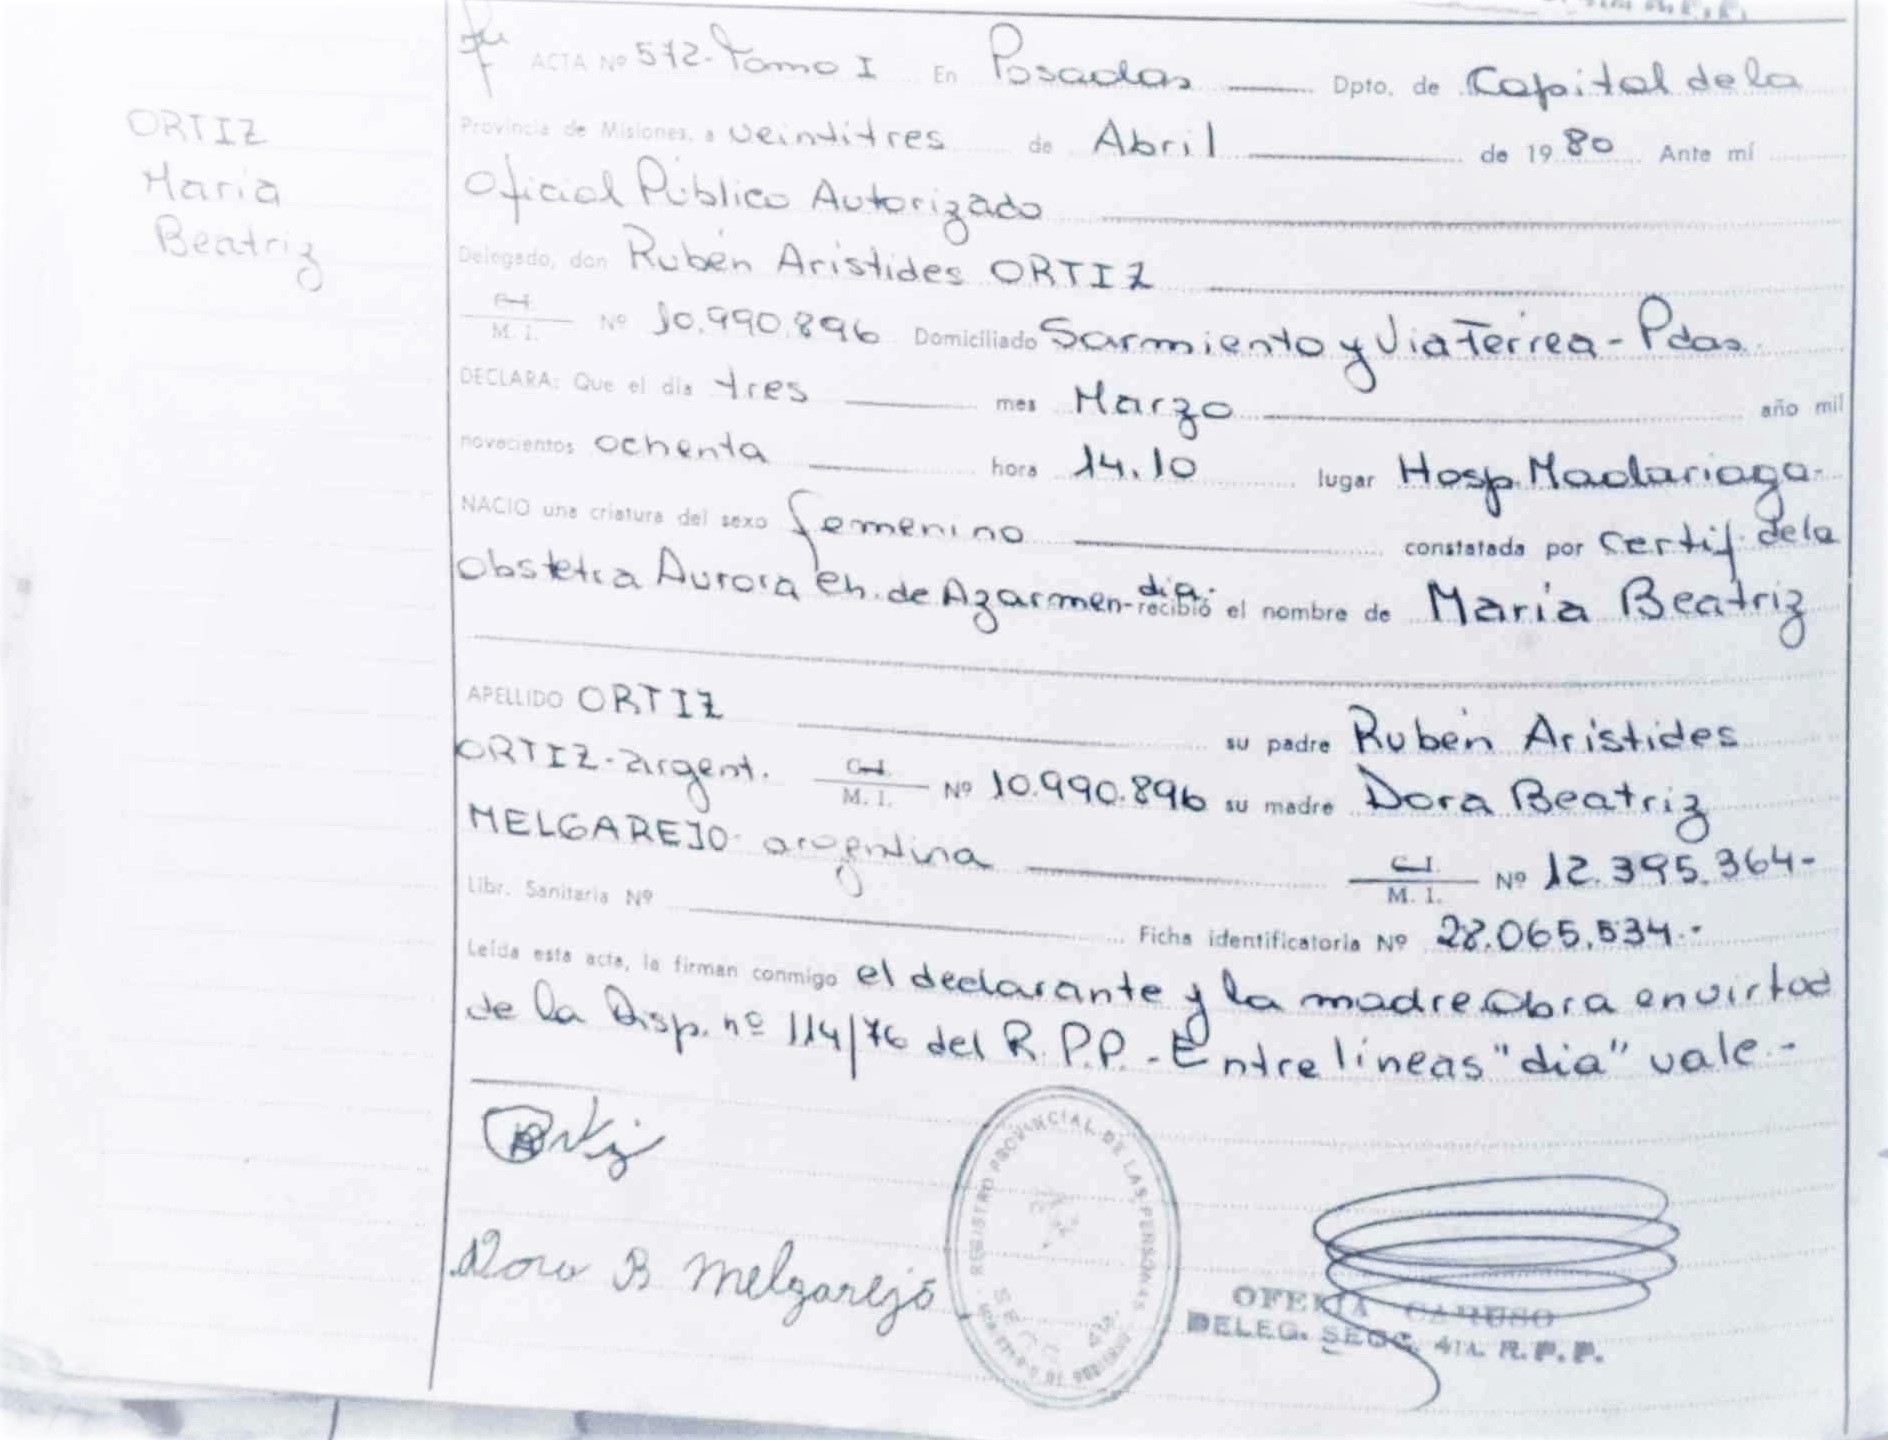 ORTIZ
Maria
Beatriz
ACTA Nº 572- Tomo I En Posadas Dpto. de Capital de la
Provincia de Misiones, a veintitres de Abril de 1980 Ante mí
Oficial Público Autorizado
Delegado, don Rubén Aristides ORTIZ
C.I. M. I. Nº 10.990.896 Domiciliado Sarmiento y Via Ferrea - Pdas.
DECLARA: Que el día tres mes Marzo año mil
novecientos ochenta hora 14.10 lugar Hosp. Madariaga-
NACIO una criatura del sexo femenino constatada por certif. de la
obstetra Aurora Ch. de Azarmen- dia. recibió el nombre de María Beatriz
APELLIDO ORTIZ su padre Rubén Aristides
ORTIZ- argent. C.I. M. I. Nº 10.990.896 su madre Dora Beatriz
MELGAREJO- argentina C.I. M. I. Nº 12.395.364-
Libr. Sanitaria Nº Ficha identificatoria Nº 28.065.534.-
Leída esta acta, la firman conmigo el declarante y la madre obra en virtud
de la Disp. nº 114/76 del R.P.P. - Entre líneas "dia" vale.-
Ortiz
Dora B Melgarejo
REGISTRO PROVINCIAL DE LAS PERSONAS
OFELIA CARUSO
DELEG. SECC. 4TA. R.P.P.